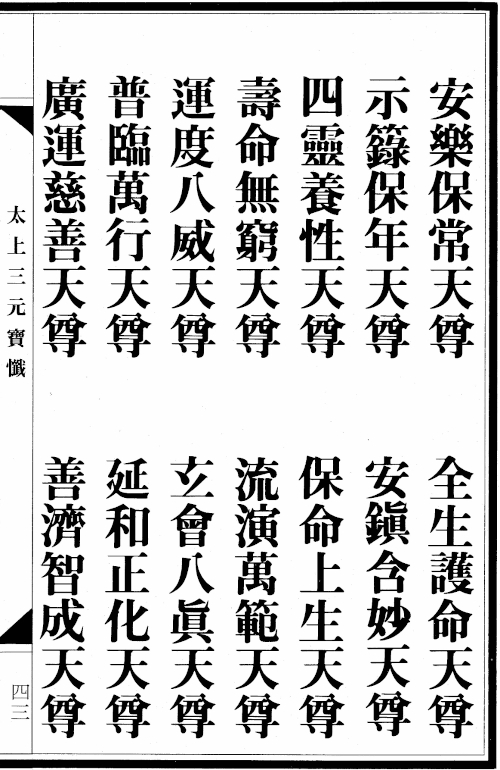 安樂保常天尊　全生護命天尊
示籙保年天尊　安鎭含妙天尊
四靈養性天尊　保命上生天尊
壽命無窮天尊　流演萬範天尊
運度八威天尊　玄會八眞天尊
普臨萬行天尊　延和正化天尊
廣運慈善天尊　善濟智成天尊
太上三元寶懺
四三